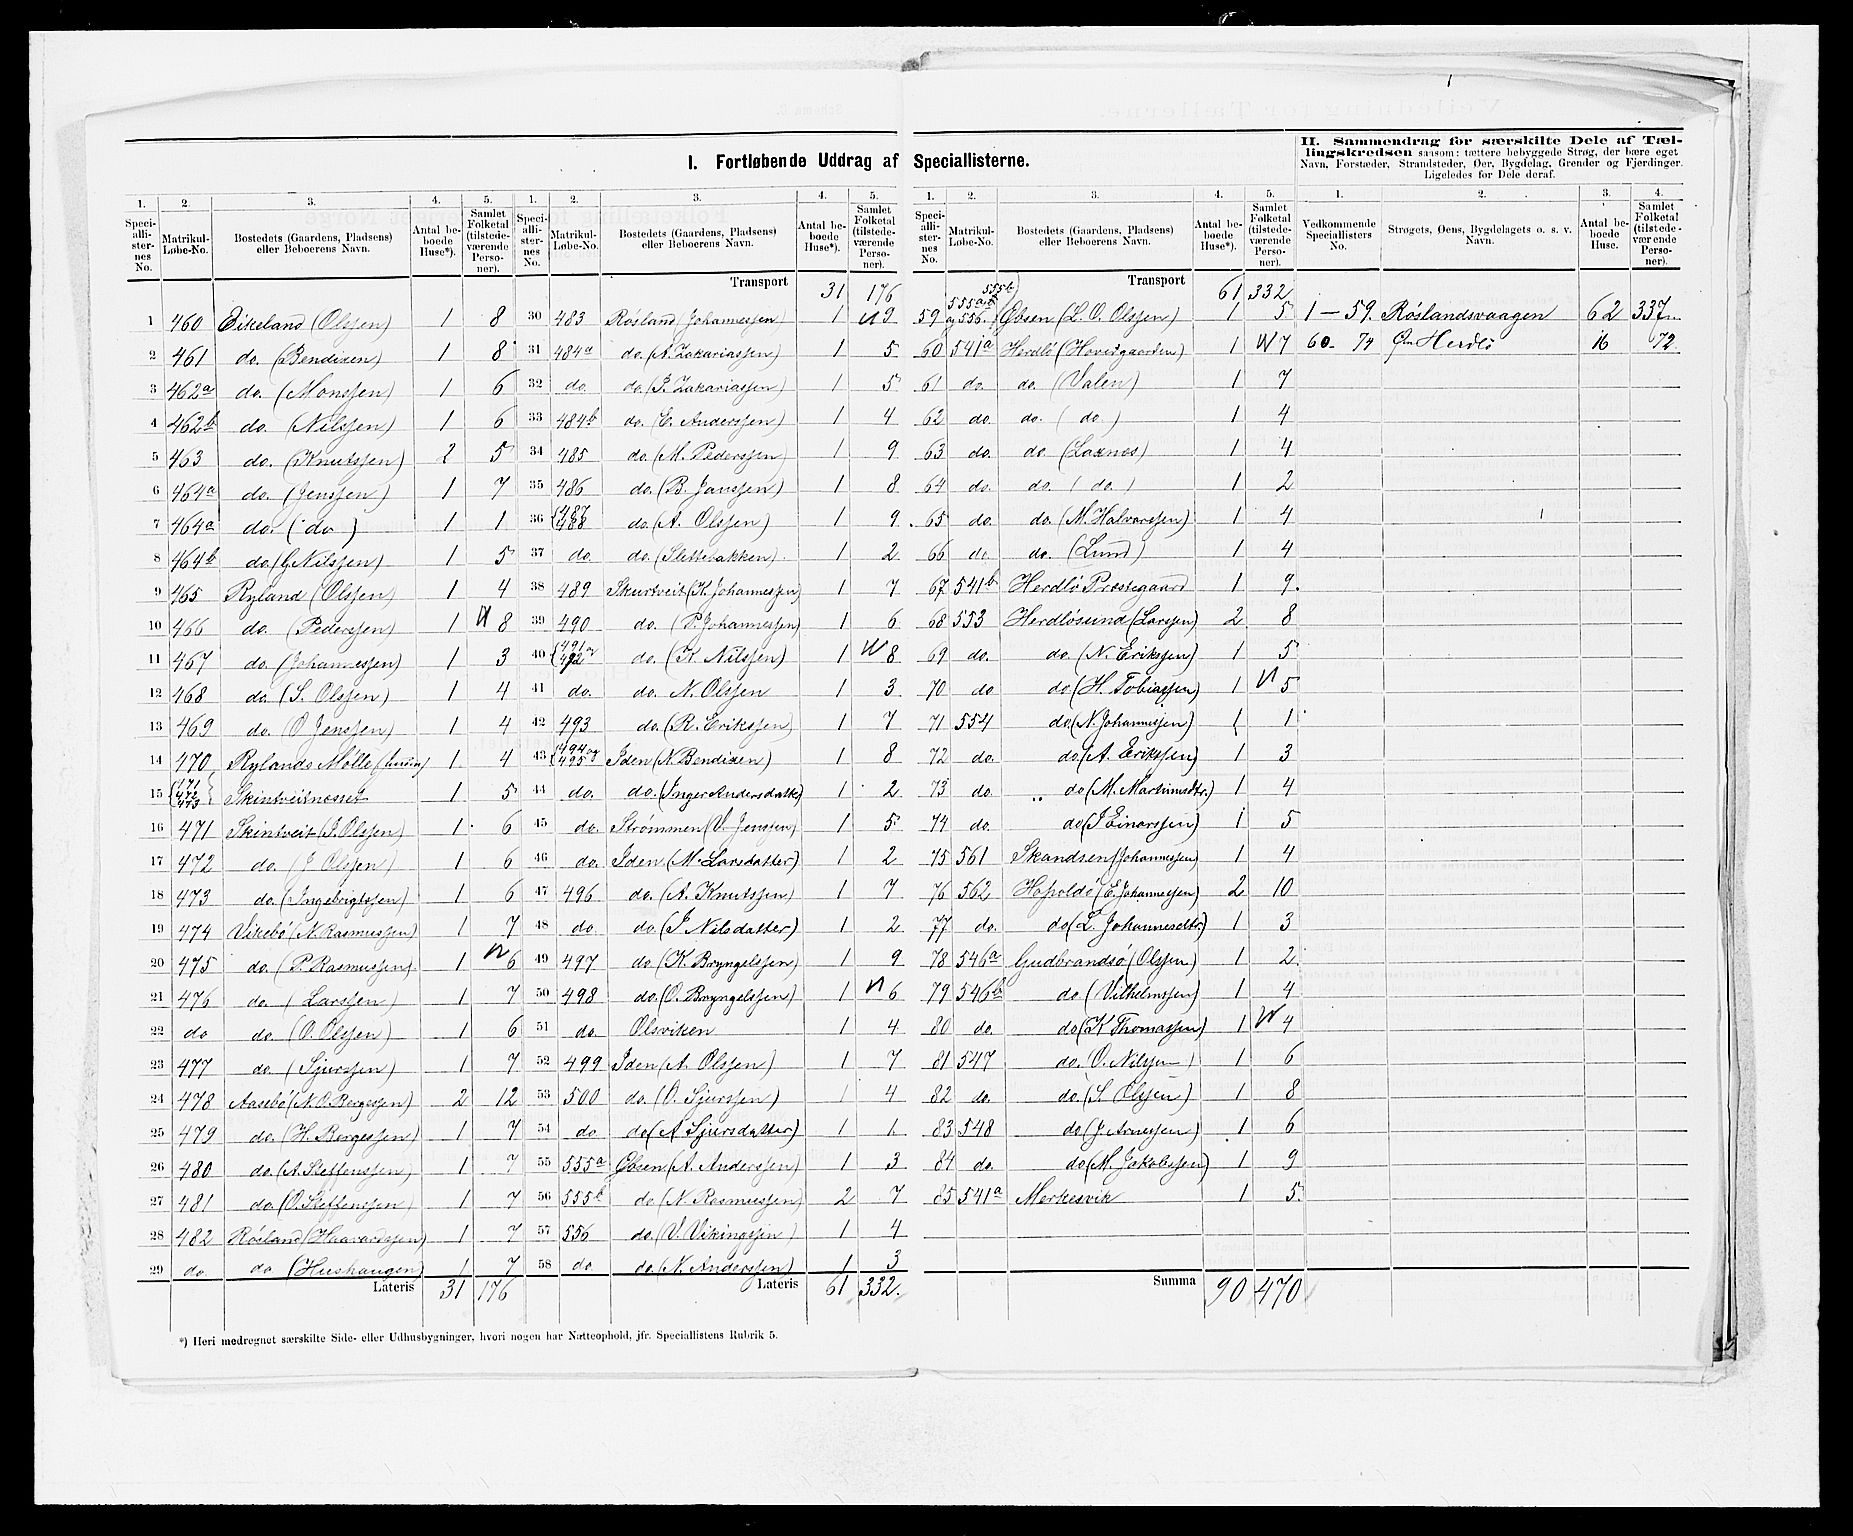 I. Fortløbende Uddrag af Speciallisterne.
II. Sammendrag for særskilte Dele af Tællingskredsen saasom: tættere bebyggede Strøg, der bære eget Navn, Forstæder, Strandsteder, Øer, Bygdelag, Grender og Fjerdinger. Ligeledes for Dele deraf.
1. 2. 3. 4. 5.
Speciallisternes No. Matrikul-Løbe-No. Bostedets (Gaardens, Pladsens) eller Beboerens Navn. Antal beboede Huse*). Samlet Folketal (tilstedeværende Personer).
1 460 Eikeland (Olssen) 1 8
2 461 do. (Bendixen) 1 8
3 462a do. (Monssen) 1 6
4 462b do. (Nilssen) 1 6
5 463 do. (Knutssen) 2 5
6 464a do. (Jenssen) 1 7
7 464a do. (do) 1 1
8 464b do. (G Nilssen) 1 5
9 465 Ryland (Olssen) 1 4
10 466 do. (Pederssen) 1 8
11 467 do. (Johannessen) 1 3
12 468 do. (S. Olssen) 1 4
13 469 do. (O Jenssen) 1 4
14 470 Rylands Mølle 1 4
15 471 472 473 Skintveitnosset 1 5
16 471 Skintveit (J. Olssen) 1 6
17 472 do. (J Olssen) 1 6
18 473 do. (Ingebrigtssen) 1 6
19 474 Vikebö (N. Rasmussen) 1 7
20 475 do. (P. Rasmussen) 1 6
21 476 do. (Larssen) 1 7
22 do do. (O. Olssen) 1 6
23 477 do. (Sjurssen) 1 7
24 478 Aasebö (N. O. Bergessen) 2 12
25 479 do. (H. Bergessen) 1 7
26 480 do. (A. Steffenssen) 1 7
27 481 do. (O. Steffenssen) 1 7
28 482 Rösland (Haavardssen) 1 7
29 do do (Hushaugen) 1 7
Lateris 31 176
1. 2. 3. 4. 5.
Speciallisternes No. Matrikul-Løbe-No. Bostedets (Gaardens, Pladsens) eller Beboerens Navn. Antal beboede Huse*). Samlet Folketal (tilstedeværende Personer).
Transport 31 176
30 483 Rösland Johannessen) 1 9
31 484a do. (A. Zakariassen) 1 5
32 do. do. (P. Zakariassen) 1 5
33 484b do. (E. Anderssen) 1 4
34 485 do. (M. Pederssen) 1 9
35 486 do. (B. Janssen) 1 8
36 487 488 do. (A. Olssen) 1 9
37 do. do. (Slettebakken) 1 2
38 489 Skurtveit (K. Johannessen) 1 7
39 490 do. (P. Johannessen) 1 6
40 491 og 492 do. (K Nilssen) 1 8
41 do. do. N. Olssen 1 3
42 493 do. (R. Erikssen) 1 7
43 494 og 495 Iden (N. Bendixen) 1 8
44 do. do. (Inger Andersdatter) 1 2
45 do. Strømmen (V. Jenssen) 1 5
46 do. Iden (M. Larsdatter) 1 2
47 496 do. (A. Knutssen) 1 7
48 do do. (I Nilsdatter) 1 2
49 497 do (K. Bryngelssen) 1 9
50 498 do. (O. Bryngelssen) 1 6
51 do. Olsviken 1 4
52 499 Iden (A. Olssen) 1 7
53 500 do. (O. Sjurssen) 1 4
54 do do (A Sjursdatter) 1 1
55 555a Gbsen (A. Anderssen) 1 3
56 555b do. (N. Rasmussen) 2 7
57 556 do. (V. Vikingssen) 1 4
58 do do. (N. Anderssen) 1 3
Lateris 61 332.
1. 2. 3. 4. 5.
Speciallisternes No. Matrikul-Løbe-No. Bostedets (Gaardens, Pladsens) eller Beboerens Navn. Antal beboede Huse*). Samlet Folketal (tilstedeværende Personer).
Transport 61 332
59 555a 555b og 556. Gbsen (L. O. Olssen) 1 5
60 541a Herdlö (Hovedgaarden) 1 7
61 do. do. (Valen) 1 7
62 do. do. (do) 1 4
63 do. do (Laxnes) 1 4
64 do. do. (do.) 1 2
65 do. do. (M. Halvorssen) 1 4
66 do do. (Lund) 1 4
67 541b Herdlö Præstegaard 1 9.
68 553 Herdlösund (Larssen) 2 8
69 do. do. (N. Erikssen) 1 5
70 do do (H. Tobiassen) 1 5
71 554 do (N. Johannessen) 1 1
72 do. do (A. Erikssen) 1 3
73 do. do (M. Martinusdtr.) 1 4
74 do. do (I Einarssen) 1 5
75 561 Skandsen (Johannessen) 1 4
76 562 Hopoldö (E. Johannessen) 2 10
77 do. do (L. Johannesdtr.) 1 3
78 546a Gudbrandsö (Olssen) 1 2
79 546b do. (Vilhelmssen) 1 4
80 do. do (K Thomassen) 1 4
81 547 do. (O. Nilssen) 1 6
82 do. do. (S. Olssen) 1 8
83 548 do (J. Arnessen) 1 6
84 do. do (M. Jakobssen) 1 9
85 541a Merkesvik 1 5.
Summa 90 470
1. 2. 3. 4.
Vedkommende Speciallisters No. Strøgets, Øens, Bygdelagets o. s. v. Navn. Antal beboede Huse. Samlet Folketal (tilstedeværende Personer).
1 — 59. Röslandsvaagen 62 337
60 - 74 Øen Herdlö 16 72.
*) Heri medregnet særskilte Side- eller Udhusbygninger, hvori nogen har Natteophold, jfr. Speciallistens Rubrik 5.